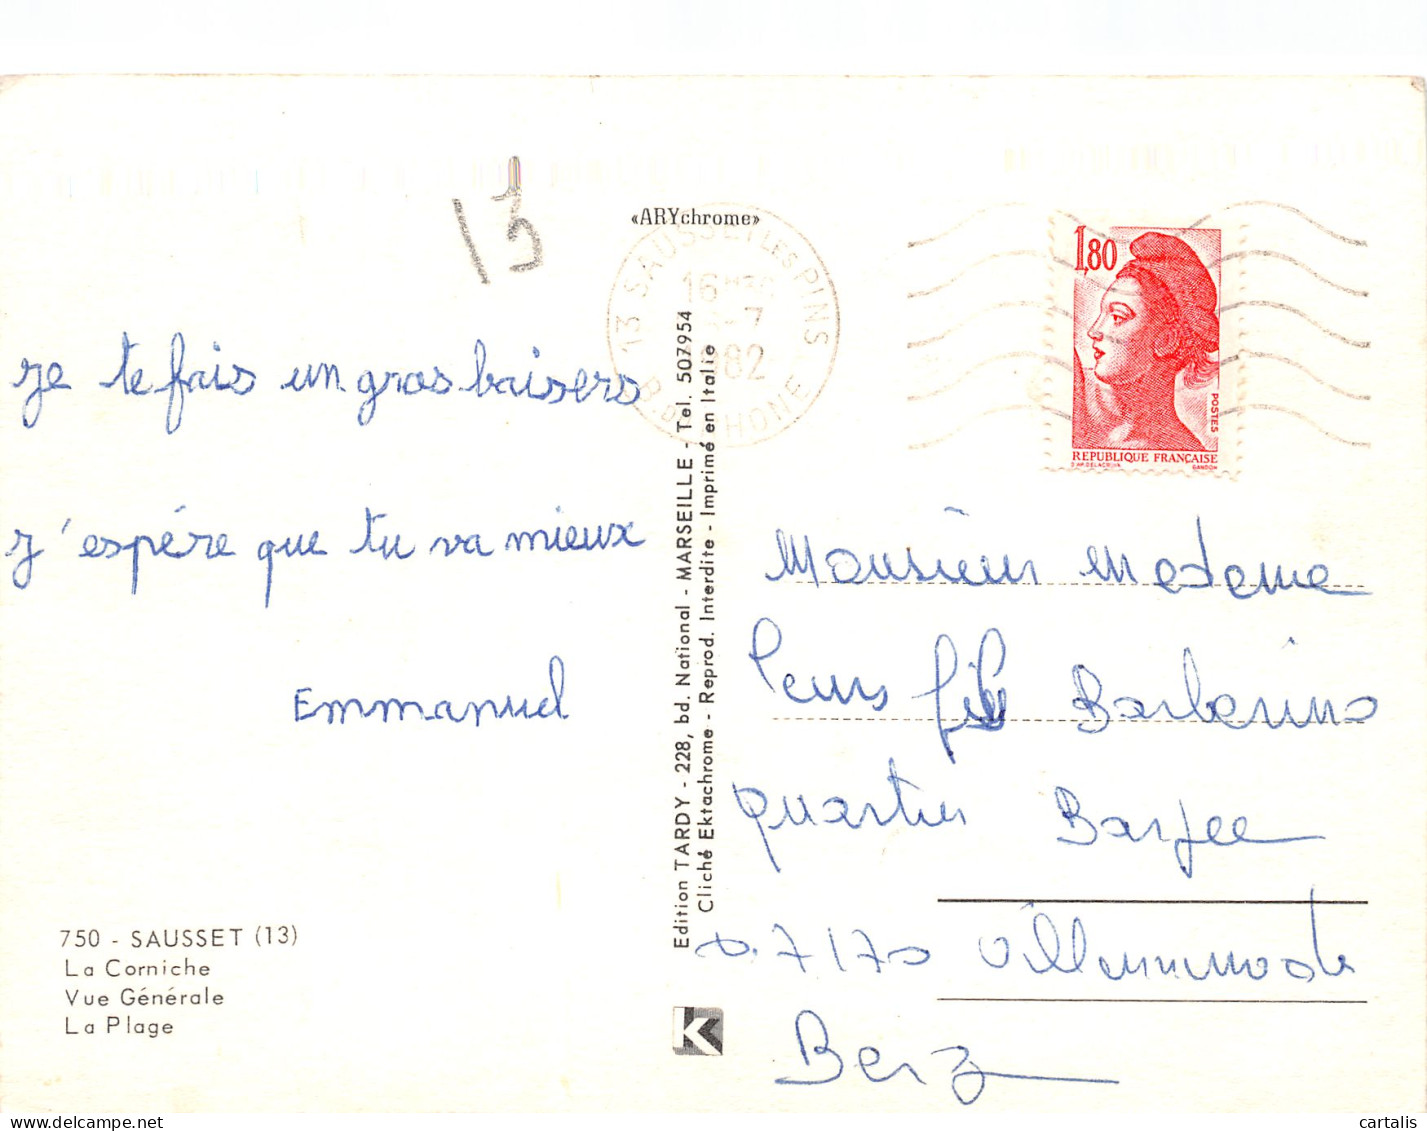 13
«ARYchrome»
13 SAUSSET LES PINS
16 H30
-7
1982
B. DU RHONE
1,80
POSTES
REPUBLIQUE FRANÇAISE
D'AP. DELACROIX GANDON
je te fais un gros baisers
j'espére que tu va mieux
Emmanuel
750 - SAUSSET (13)
La Corniche
Vue Générale
La Plage
Edition TARDY - 228, bd. National - MARSEILLE - Tel. 507954
Cliché Ektachrome - Reprod. Interdite - Imprimé en Italie
K
Monsieur Madame
leurs fils Barberino
quartier
07170
Berg
cartalis